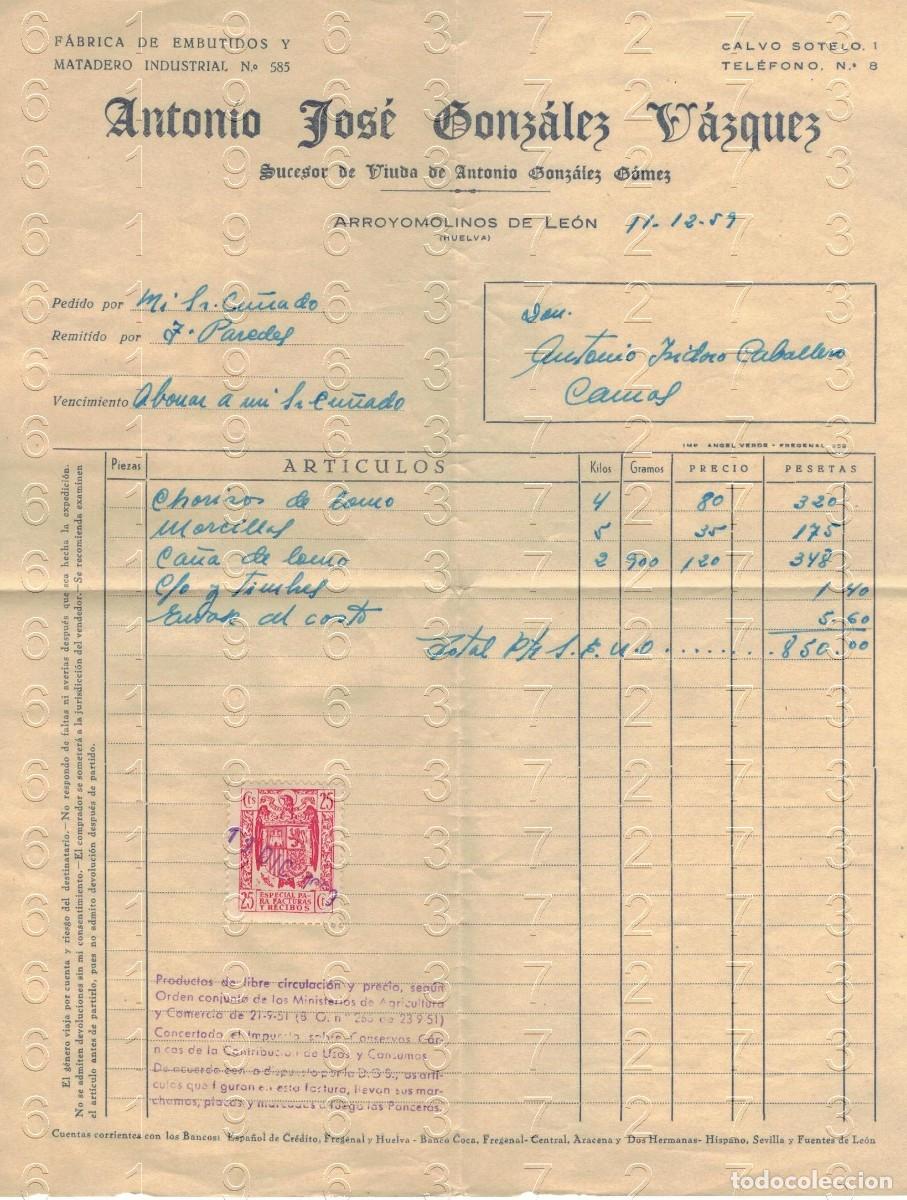 FÁBRICA DE EMBUTIDOS Y
MATADERO INDUSTRIAL N.º 585
CALVO SOTELO, 1
TELÉFONO, N.º 8
Antonio José González Vázquez
Sucesor de Viuda de Antonio González Gómez
ARROYOMOLINOS DE LEÓN 11-12-59
(HUELVA)
Pedido por Mi Sr. Cuñado
Remitido por J. Paredes
Vencimiento Abonar a mi Sr Cuñado
Don.
Antonio Isidoro Caballero
Camas
IMP. ANGEL VERDE - FREGENAL
Piezas ARTICULOS Kilos Gramos PRECIO PESETAS
Chorizos de lomo 4 80 320
Morcillas 5 35 175
Caña de lomo 2 900 120 348
C/o y timbres 1-40
al costo 5-60
Total P/R S.E.U.O. ....... 850.00
El género viaja por cuenta y riesgo del destinatario.—No respondo de faltas ni averías después que sea hecha la expedición.
No se admiten devoluciones sin mi consentimiento.—El comprador se someterá a la jurisdicción del vendedor.—Se recomienda examinen
el artículo antes de partirlo, pues no admito devolución después de partido.
Cts 25
13 DIC
25 Cts
ESPECIAL PA-
RA FACTURAS
Y RECIBOS
Productos de libre circulación y precio, según
Orden conjunta de los Ministerios de Agricultura
y Comercio de 21-9-51 (B. O. n.º 266 de 23-9-51)
Concertado el Impuesto sobre Conservas Cár-
nicas de la Contribución de Usos y Consumos
De acuerdo con lo dispuesto por la D.G.S., los artí-
culos que figuran en esta factura, llevan sus mar-
chamos, placas y marcados a fuego las Panceras.
Cuentas corrientes con los Bancos: Español de Crédito, Fregenal y Huelva - Banco Coca, Fregenal- Central, Aracena y Dos Hermanas- Hispano, Sevilla y Fuentes de León
todocoleccion